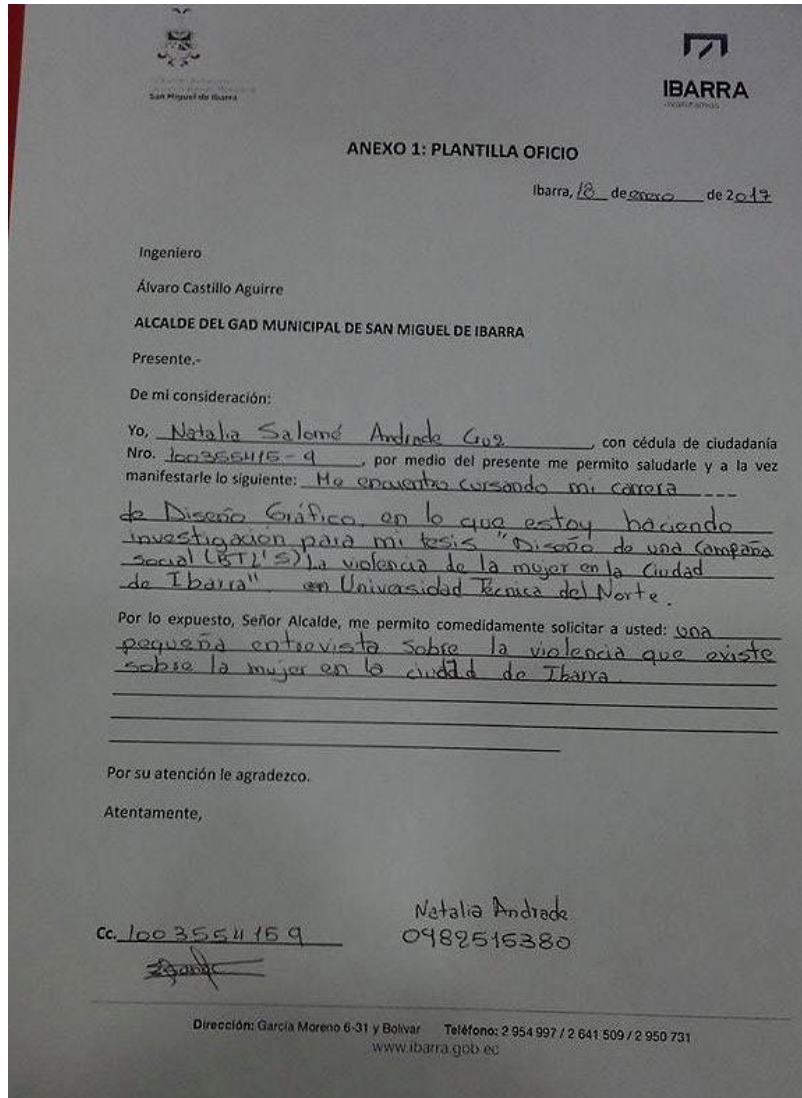 San Miguel de Ibarra
IBARRA
ANEXO 1: PLANTILLA OFICIO
Ibarra, 18 de enero de 2017
Ingeniero
Álvaro Castillo Aguirre
ALCALDE DEL GAD MUNICIPAL DE SAN MIGUEL DE IBARRA
Presente.-
De mi consideración:
Yo, Natalia Salomé Andrade Guz, con cédula de ciudadanía
Nro. 100355415-9, por medio del presente me permito saludarle y a la vez
manifestarle lo siguiente: Me encuentro cursando mi carrera
de Diseño Gráfico, en lo que estoy haciendo
investigación para mi tesis "Diseño de una Campaña
social (BTL'S) La violencia de la mujer en la Ciudad
de Ibarra" en Universidad Técnica del Norte.
Por lo expuesto, Señor Alcalde, me permito comedidamente solicitar a usted: una
pequeña entrevista sobre la violencia que existe
sobre la mujer en la ciudad de Ibarra.
Por su atención le agradezco.
Atentamente,
Natalia Andrade
Cc. 1003554159
0982515380
Dirección: García Moreno 6-31 y Bolívar Teléfono: 2 954 997 / 2 641 509 / 2 950 731
www.ibarra.gob.ec